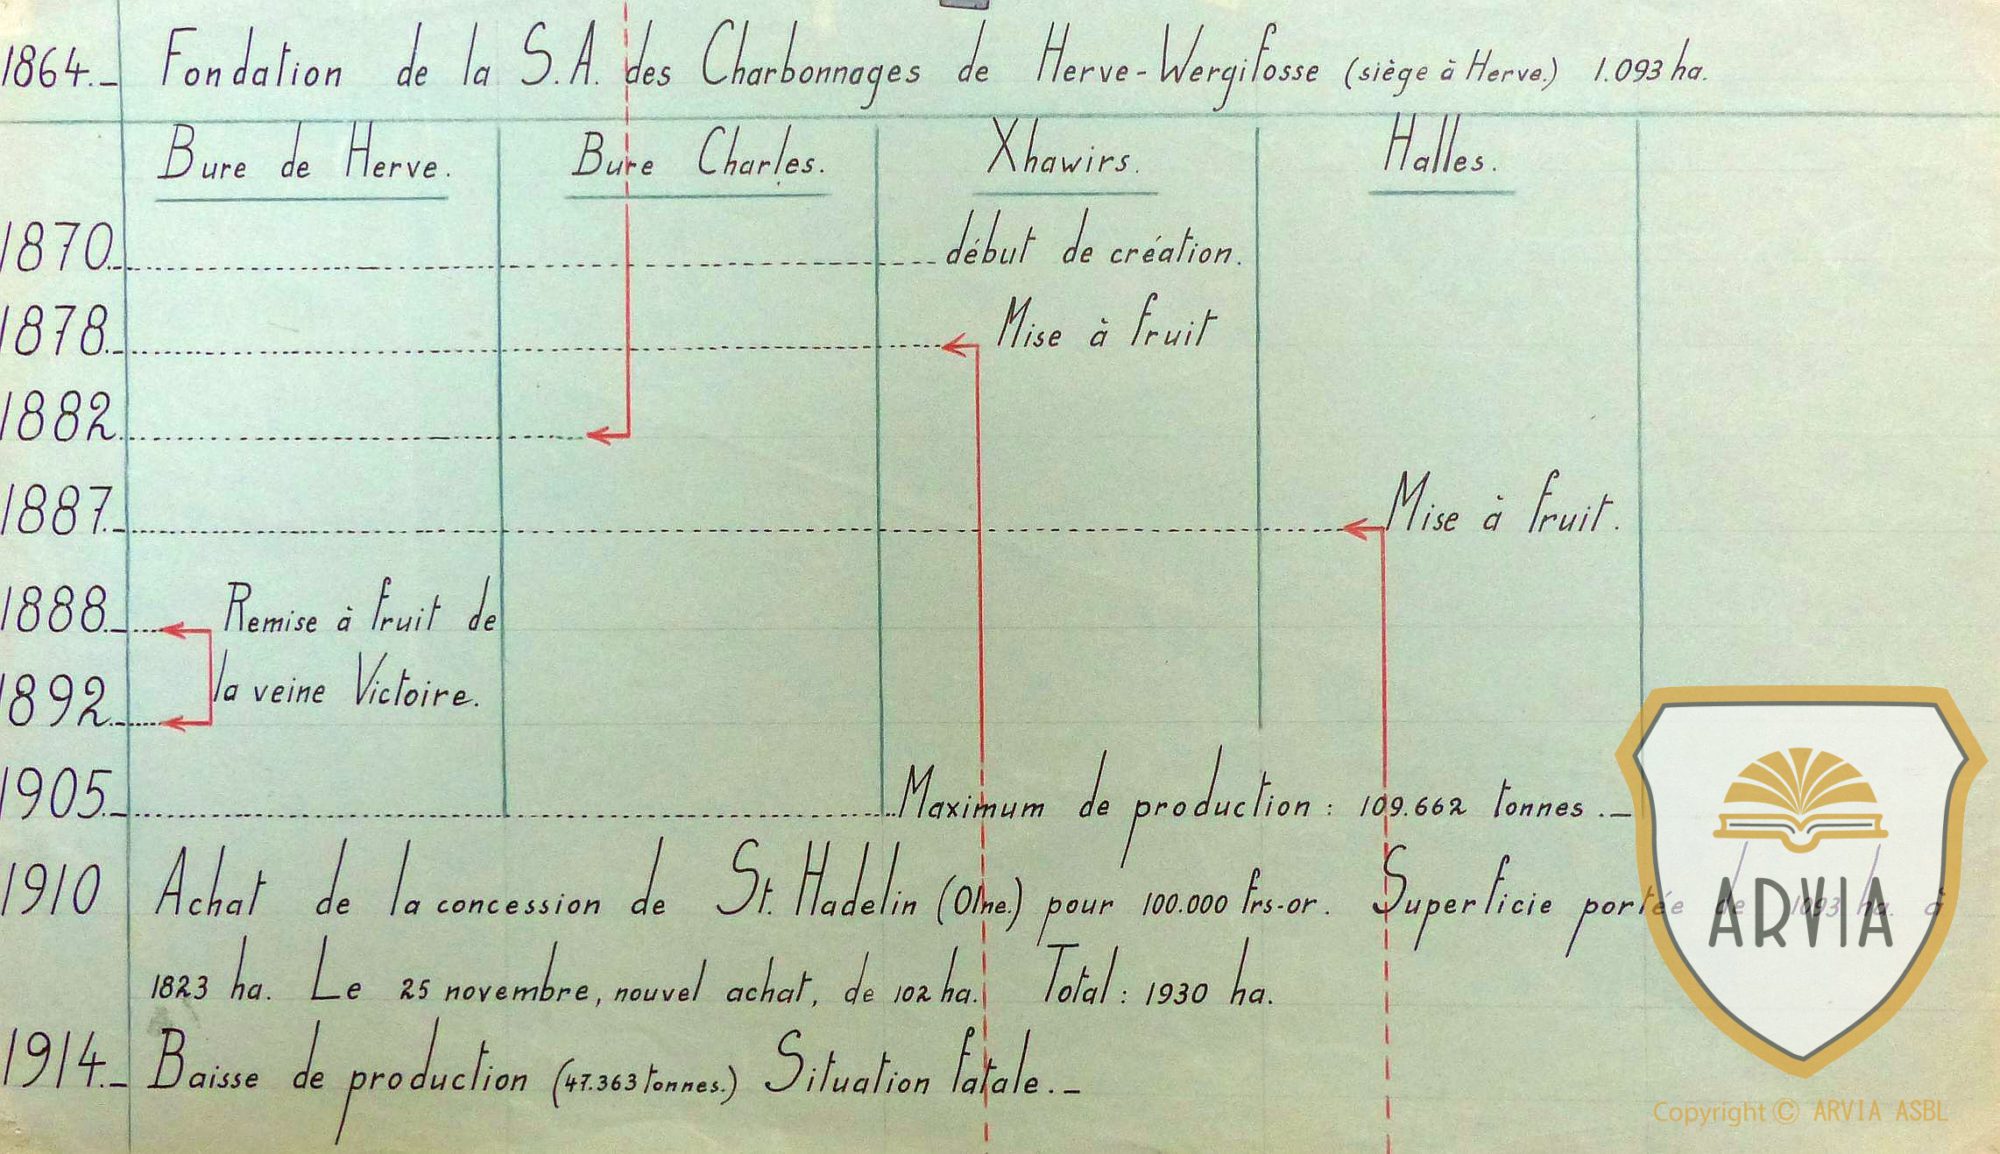 1864._ Fondation de la S.A. des Charbonnages de Herve-Wergifosse (siège à Herve.) 1.093 ha.
Bure de Herve. Bure Charles. Xhawirs. Halles.
1870 début de création.
1878 Mise à fruit
1882
1887 Mise à fruit.
1888 Remise à fruit de
1892 la veine Victoire.
1905 Maximum de production : 109.662 tonnes ._
1910 Achat de la concession de St. Hadelin (Olne.) pour 100.000 frs-or. Superficie portée de 1093 ha. à
1823 ha. Le 25 novembre, nouvel achat, de 102 ha. Total : 1930 ha.
1914._ Baisse de production (47.363 tonnes.) Situation fatale._
ARVIA
Copyright © ARVIA ASBL